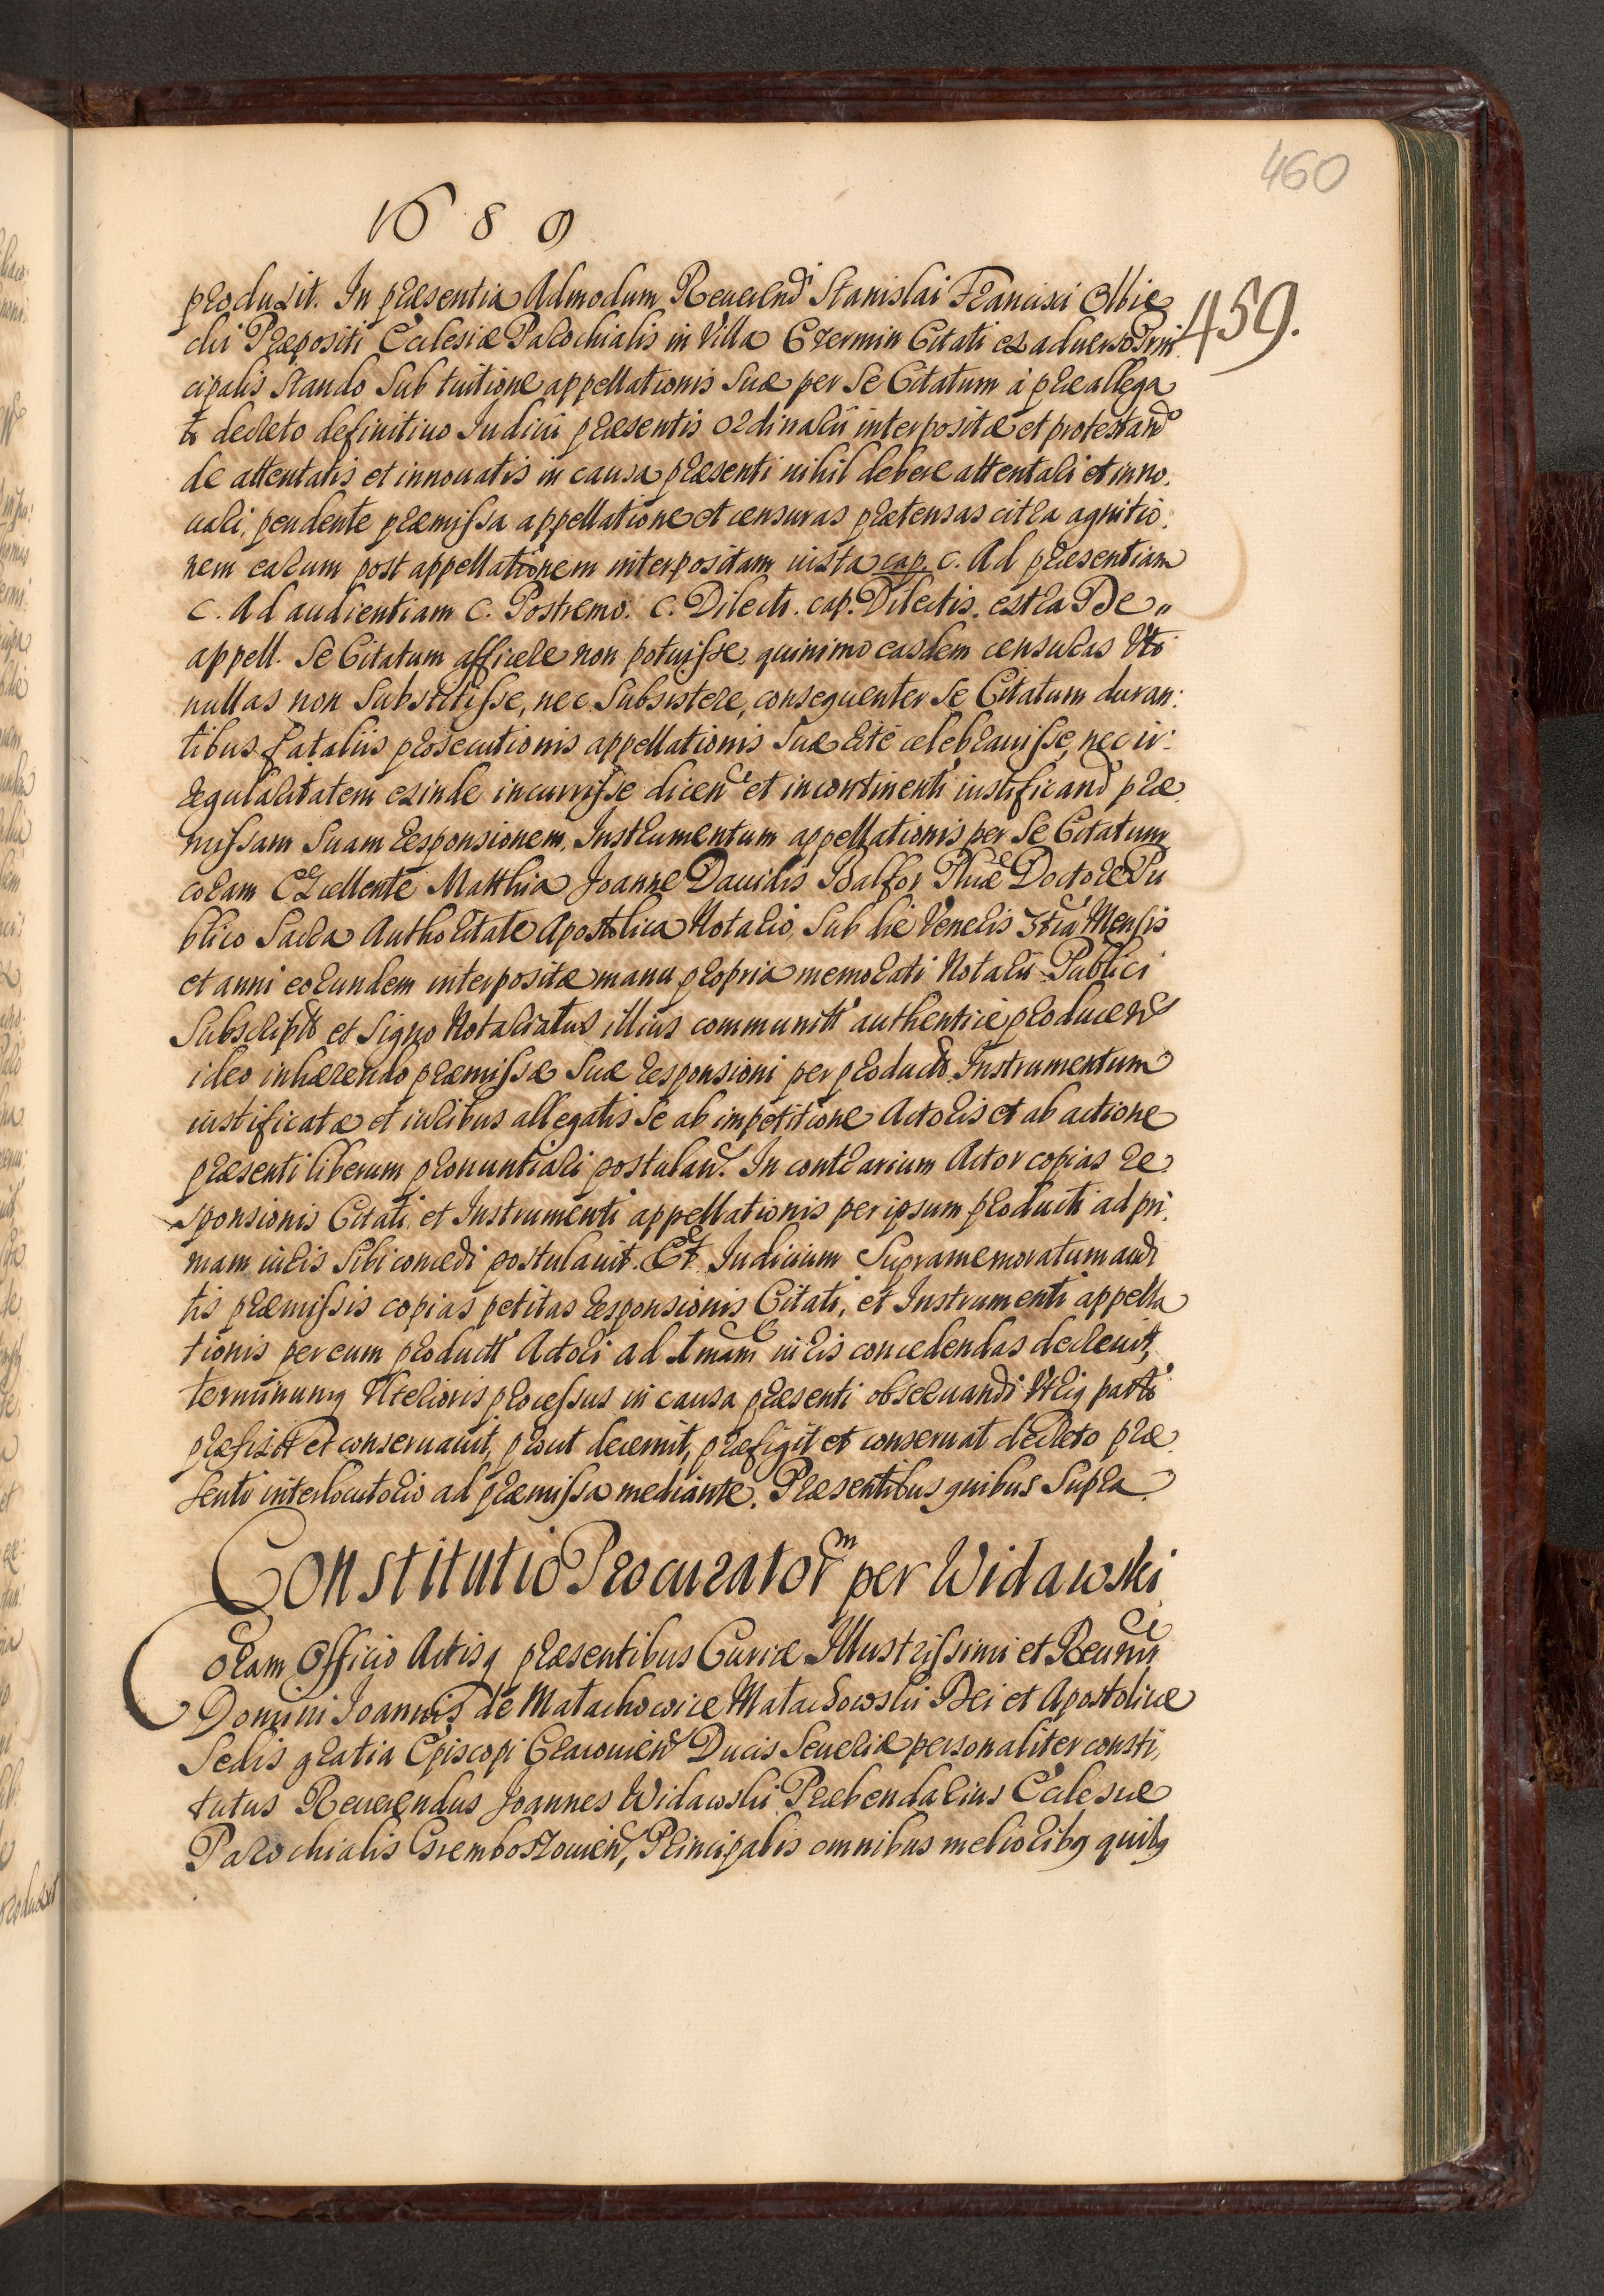 460
1689
459.
produxit. In præsentia Admodum Reuerendi Stanislai Francisci Olbie
cki Præpositi Ecclesiæ Parochialis in Villa Czermin Citati ex aduerso Prin
cipalis stando sub tuitione appellationis suæ per se Citatum à præallega
to decreto definitiuo Iudicii præsentis ordinarii interpositæ et protestand
de attentatis et innouatis in causa præsenti nihil debere attentari et inno:
uari, pendente præmissa appellatione et censuras prætensas citra agnitio:
nem earum post appellationem interpositam iuxta cap. c. Ad præsentiam
c. Ad audientiam c. Postremo. c. Dilecti. cap. Dilectis. extra De„
appell. se Citatum afficere non potuisse, quinimo easdem censuras Vti
nullas non substitisse, nec subsistere, consequenter se Citatum duran:
tibus fataliis prosecutionis appellationis suæ ritè celebrauisse, nec ir:
regularitatem exinde incurrisse dicen et incontinenti iustificand præ
missam suam responsionem, Instrumentum appellationis per se Citatum
coram Excellente Matthia Joanne Dauidis Balfor Phiæ Doctore Pu
blico Sacra Authoritate Apostolica Notario, sub die Veneris 3tia Mensis
et anni eorundem interpositæ manu propria memorati Notarii Publici
Subscripto et Signo Notariatus illius communitt authentice producen
ideo inhærendo præmissæ suæ responsioni per productt Instrumentum
iustificatæ et iuribus allegatis se ab impetitione Actoris et ab actione
præsenti liberum pronuntiari postulan. In contrarium Actor copias re
sponsionis Citati, et Instrumenti appellationis per ipsum producti ad pri
mam iuris sibi concedi postulauit. Et Iudicium supramemoratum audi
tis præmissis copias petitas responsionis Citati, et Instrumenti appella
tionis per eum productt Actori ad 1mam iuris concedendas decreuit,
terminumq Vlterioris processus in causa præsenti obseruandi Vtriq parti
præfixit et conseruauit, prout decernit, præfigit et conseruat decreto præ
senti interlocutorio ad præmissa mediante. Præsentibus quibus supra.
Constitutio Procuratorm per Widawski
Coram Officio Actisq præsentibus Curiæ Illustrissimi et Reurmi
Domini Joannis de Matachowice Matachowski Dei et Apostolicæ
Sedis gratia Episcopi Cracouien Ducis Seueriæ personaliter consti,
tutus Reuerendus Joannes Widawski Præbendarius Ecclesiæ
Parochialis Gremboszouien, Principalis omnibus melioribq quibq